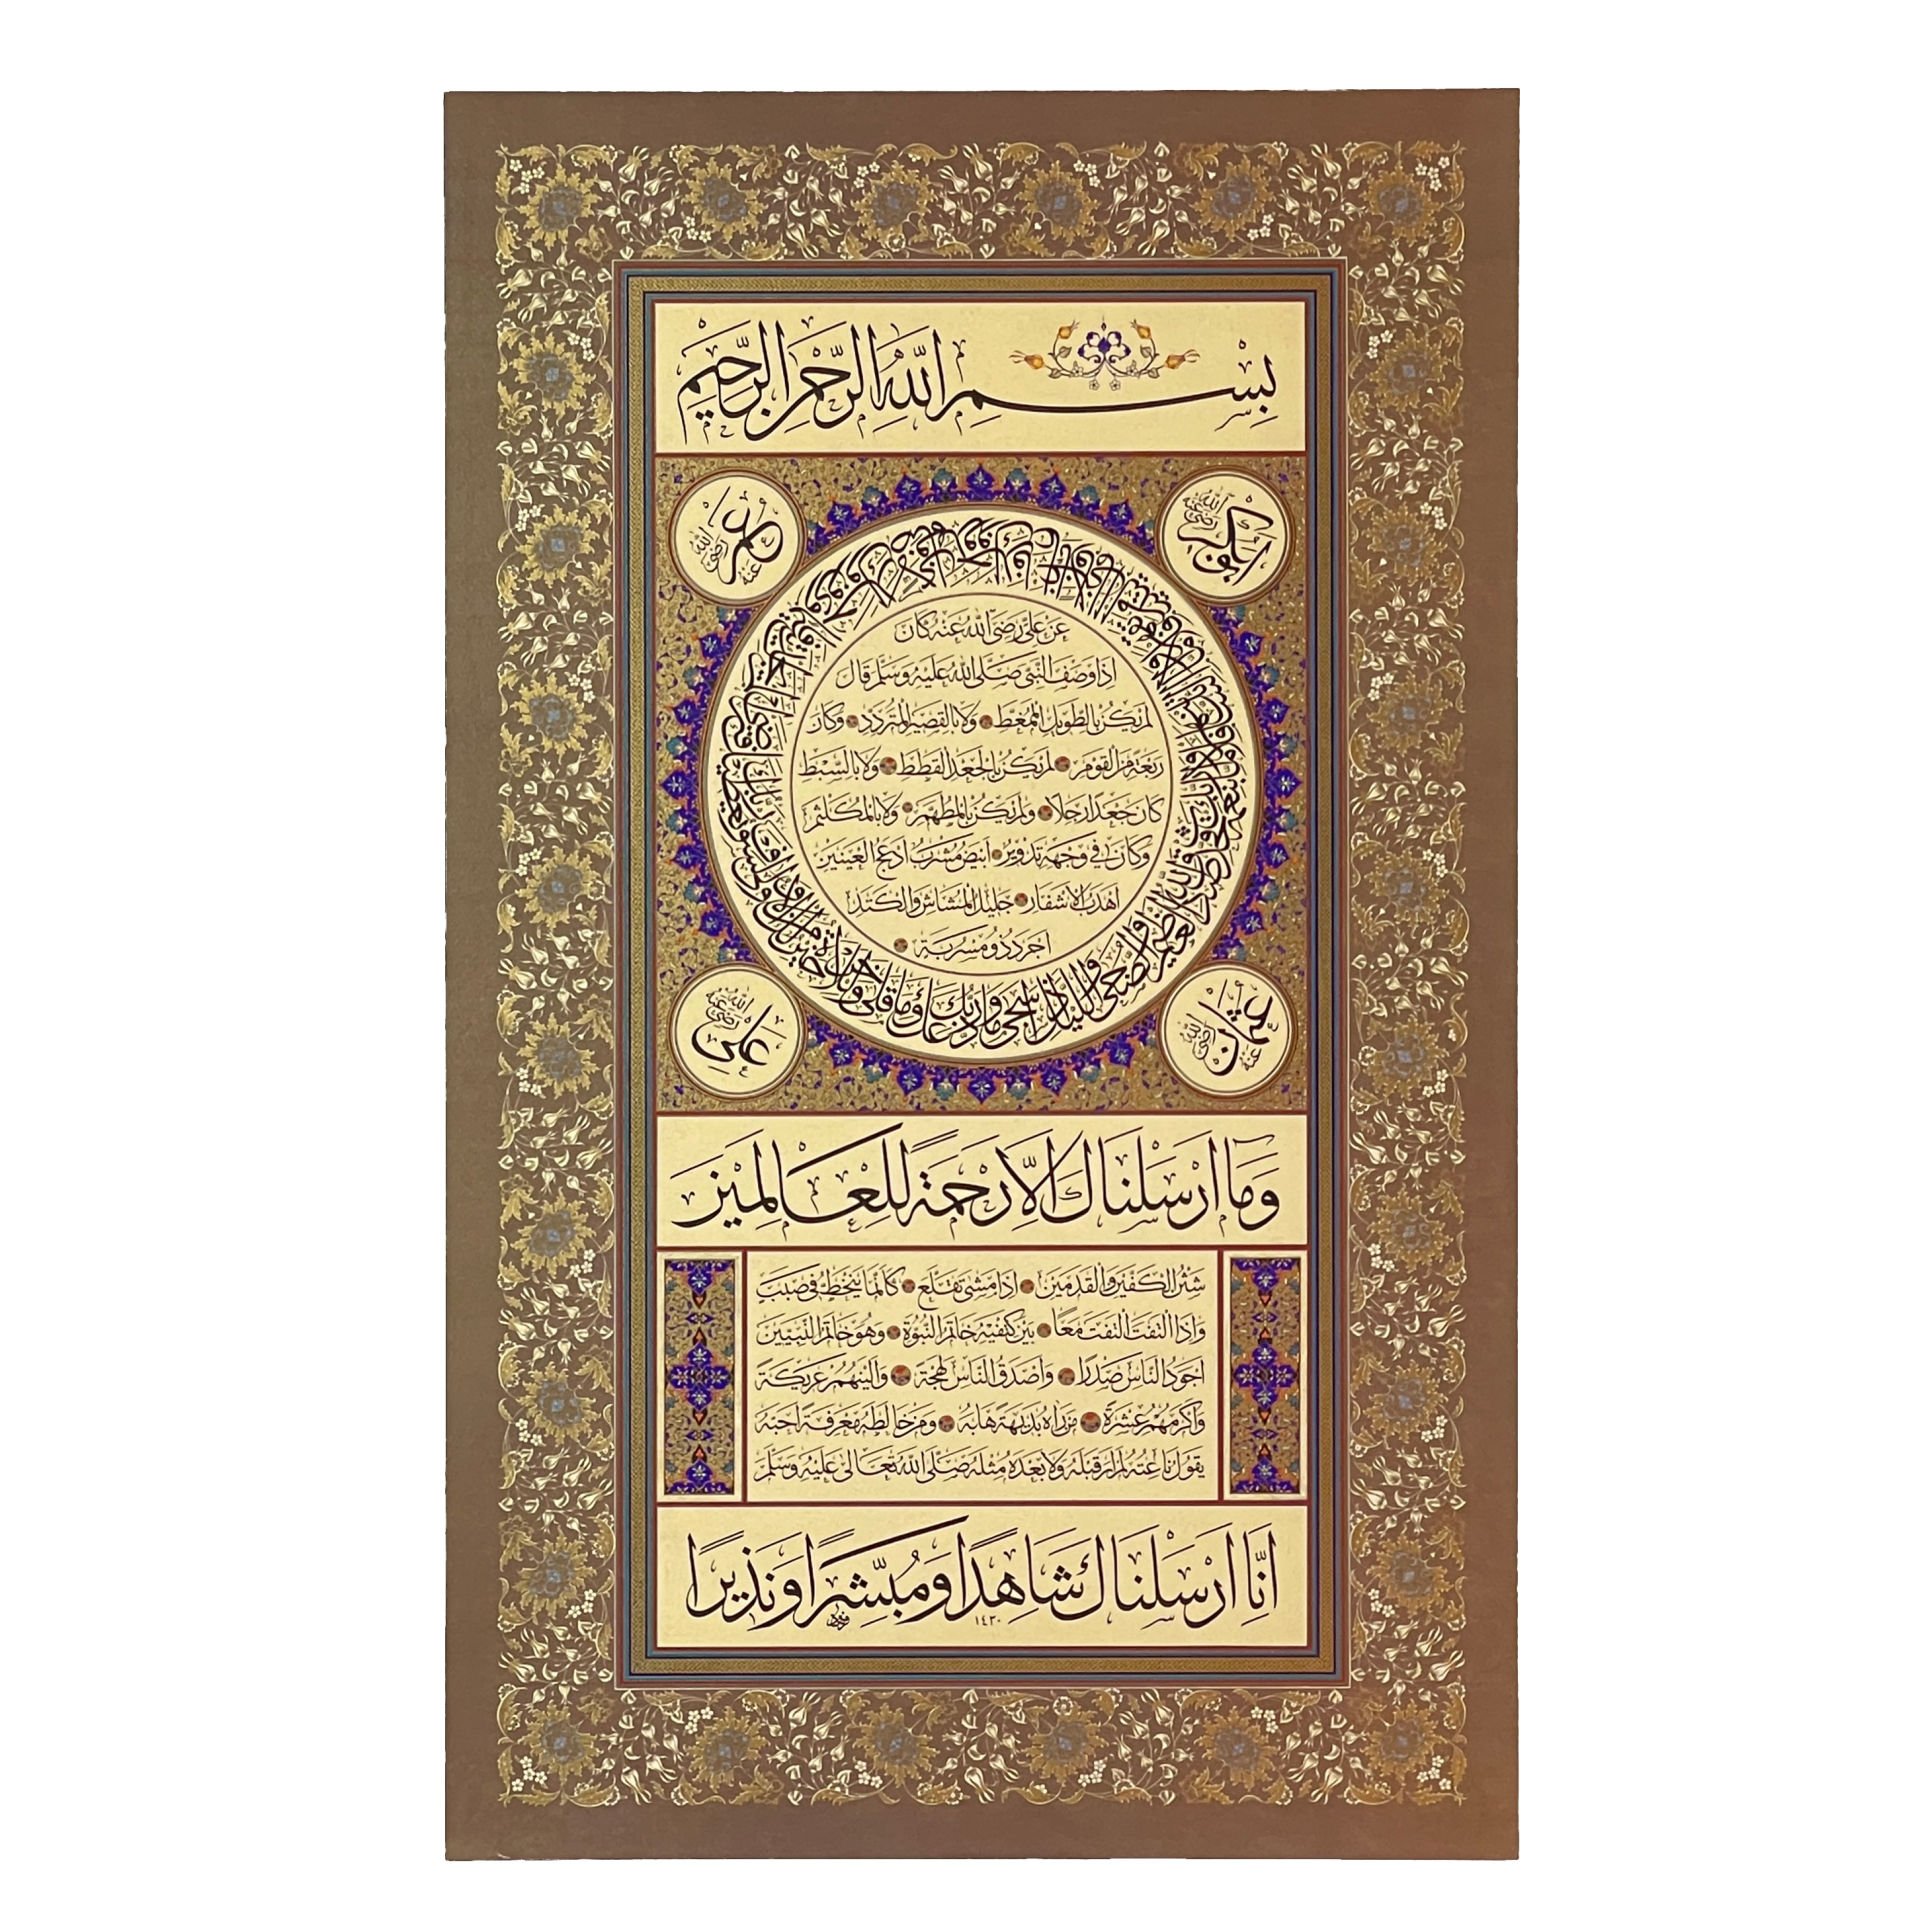 بِسْمِ اللّٰهِ الرَّحْمٰنِ الرَّحِيمِ
ابوبكر رضى الله عنه
عمر رضى الله عنه
عَنْ عَلِيٍّ رَضِيَ اللّٰهُ عَنْهُ كَانَ
اِذَا وَصَفَ النَّبِيَّ صَلَّى اللّٰهُ عَلَيْهِ وَسَلَّمَ قَالَ
لَمْ يَكُنْ بِالطَّوِيلِ الْمُمَغَّطِ وَلَا بِالْقَصِيرِ الْمُتَرَدِّدِ وَكَانَ
رَبْعَةً مِنَ الْقَوْمِ لَمْ يَكُنْ بِالْجَعْدِ الْقَطَطِ وَلَا بِالسَّبْطِ
كَانَ جَعْدًا رَجِلًا وَلَمْ يَكُنْ بِالْمُطَهَّمِ وَلَا بِالْمُكَلْثَمِ
وَكَانَ فِي وَجْهِهِ تَدْوِيرٌ اَبْيَضُ مُشْرَبٌ اَدْعَجُ الْعَيْنَيْنِ
اَهْدَبُ الْاَشْفَارِ جَلِيلُ الْمُشَاشِ وَالْكَتَدِ
اَجْرَدُ ذُو مَسْرُبَةٍ
وَالضُّحَى وَاللَّيْلِ اِذَا سَجَى مَا وَدَّعَكَ رَبُّكَ وَمَا قَلَى وَلَلْاٰخِرَةُ خَيْرٌ لَكَ مِنَ الْاُولَى وَلَسَوْفَ يُعْطِيكَ رَبُّكَ فَتَرْضَى
عثمان رضى الله عنه
على رضى الله عنه
وَمَا اَرْسَلْنَاكَ اِلَّا رَحْمَةً لِلْعَالَمِينَ
شَثْنُ الْكَفَّيْنِ وَالْقَدَمَيْنِ اِذَا مَشَى تَقَلَّعَ كَاَنَّمَا يَنْحَطُّ فِي صَبَبٍ
وَاِذَا الْتَفَتَ الْتَفَتَ مَعًا بَيْنَ كَتِفَيْهِ خَاتَمُ النُّبُوَّةِ وَهُوَ خَاتَمُ النَّبِيِّينَ
اَجْوَدُ النَّاسِ صَدْرًا وَاَصْدَقُ النَّاسِ لَهْجَةً وَاَلْيَنُهُمْ عَرِيكَةً
وَاَكْرَمُهُمْ عِشْرَةً مَنْ رَاٰهُ بَدِيهَةً هَابَهُ وَمَنْ خَالَطَهُ مَعْرِفَةً اَحَبَّهُ
يَقُولُ نَاعِتُهُ لَمْ اَرَ قَبْلَهُ وَلَا بَعْدَهُ مِثْلَهُ صَلَّى اللّٰهُ تَعَالَى عَلَيْهِ وَسَلَّمَ
اِنَّا اَرْسَلْنَاكَ شَاهِدًا وَمُبَشِّرًا وَنَذِيرًا
١٤٣٠